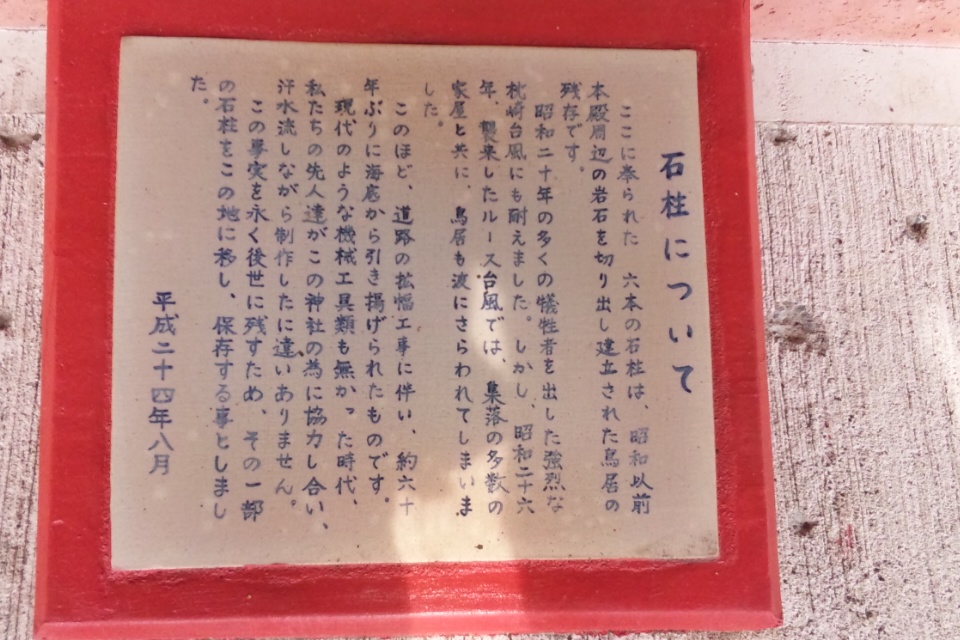 石柱について
ここに奉られた 六本の石柱は、昭和以前
本殿周辺の岩石を切り出し建立された鳥居の
残存です。
昭和二十年の多くの犠牲者を出した強烈な
枕崎台風にも耐えました。しかし、昭和二十六
年、襲来したルース台風では、集落の多数の
家屋と共に、鳥居も波にさらわれてしまいま
した。
このほど、道路の拡幅工事に伴い、約六十
年ぶりに海底から引き揚げられたものです。
現代のような機械工具類も無かった時代、
私たちの先人達がこの神社の為に協力し合い、
汗水流しながら制作したに違いありません。
この事実を永く後世に残すため、その一部
の石柱をこの地に移し、保存する事としまし
た。
平成二十四年八月